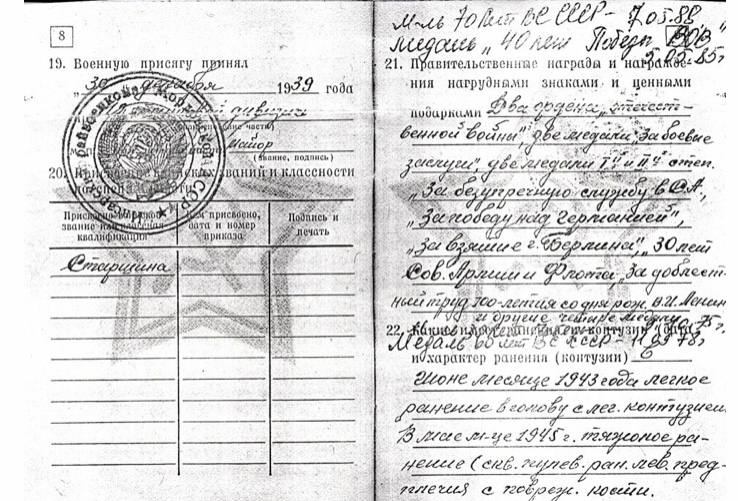 8
19. Военную присягу принял
„30 декабря 1939 года
дивизии
майор
(звание, подпись)
званий и классности
Присвоено
звание или классная
квалификация
Кем присвоено,
дата и номер
приказа
Подпись и
печать
Старшина
70 лет ВС СССР - 7.05.88
медаль „40 лет Победы ВОВ"
5.05.85г
21. Правительственные награды и награжде-
ния нагрудными знаками и ценными
подарками Два ордена „отечест-
венной войны", две медали „За боевые
заслуги" две медали I й и II й степ.
„За безупречную службу в СА",
„За победу над Германией",
„За взятие г. Берлина", „30 лет
Сов. Армии и Флота, За доблест-
ный труд 100-летия со дня рож. В.И. Ленин
и другие четыре медали
22.
Медаль 60 лет ВС СССР 78г
и характер ранения (контузии) В
Июне месяце 1943 года легкое
ранение в голову с лег. контузией.
В мае м-це 1945 г. тяжолое ра-
нение (скв. пулев. ран. лев. пред-
плечия с повреж. кости.